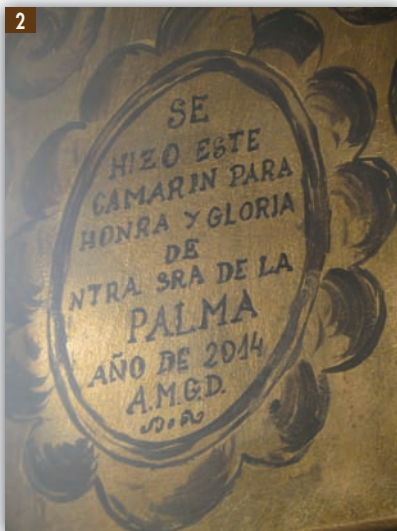 2
SE
HIZO ESTE
CAMARIN PARA
HONRA Y GLORIA
DE
NTRA SRA DE LA
PALMA
AÑO DE 2014
A.M.G.D.